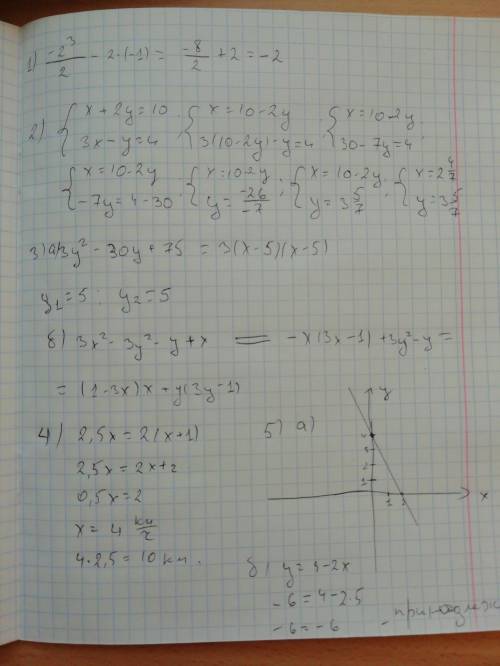 1) -2³/2 - 2·(-1) = -8/2 + 2 = -2
2) { x + 2y = 10 ; 3x - y = 4 { x = 10 - 2y ; 3(10 - 2y) - y = 4 { x = 10 - 2y ; 30 - 7y = 4 ;
{ x = 10 - 2y ; -7y = 4 - 30 ; { x = 10 - 2y ; y = -26/-7 ; { x = 10 - 2y ; y = 3 5/7 ; { x = 2 4/7 ; y = 3 5/7
3) а) 3y² - 30y + 75 = 3(x - 5)(x - 5)
y₁ = 5 ; y₂ = 5
б) 3x² - 3y² - y + x = -x(3x - 1) + 3y² - y =
= (1 - 3x)x + y(3y - 1)
4) 2,5x = 2(x + 1)
2,5x = 2x + 2
0,5x = 2
x = 4 км/ч
4·2,5 = 10 км.
5) а)
y
4
3
2
1
1 2
x
б) y = 4 - 2x
-6 = 4 - 2·5
-6 = -6 -